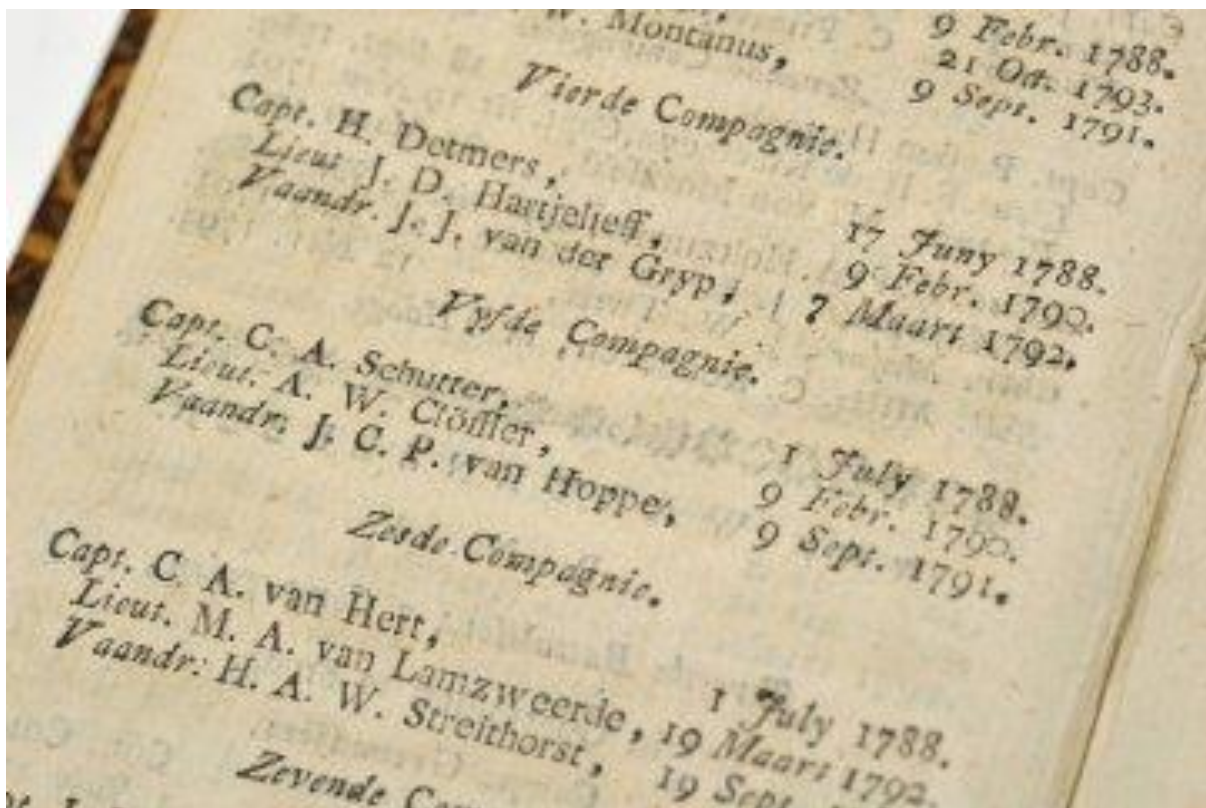 9 Febr. 1788.
21 Oct. 1793.
W. Montanus, 9 Sept. 1791.
Vierde Compagnie.
Capt. H. Detmers, 17 Juny 1788.
Lieut. J. D. Hartjelieff, 9 Febr. 1790.
Vaandr. J. J. van der Gryp, 7 Maart 1792.
Vyfde Compagnie.
Capt. C. A. Schutter, 1 July 1788.
Lieut. A. W. Clöffer, 9 Febr. 1790.
Vaandr. J. C. P. van Hoppe, 9 Sept. 1791.
Zesde Compagnie.
Capt. C A. van Hert, 1 July 1788.
Lieut. M. A. van Lamzweerde, 19 Maart 1792.
Vaandr. H. A. W. Streithorst, 19 Sept.
Zevende